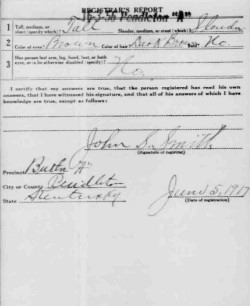 REGISTRAR'S REPORT
16-3-56 Pendleton "A"
1 Tall, medium, or short (specify which)? Tall Slender, medium, or stout (which)? Slender
2 Color of eyes? Brown Color of hair? Dark Brown Bald? No.
3 Has person lost arm, leg, hand, foot, or both eyes, or is he otherwise disabled (specify)? No.
I certify that my answers are true, that the person registered has read his own answers, that I have witnessed his signature, and that all of his answers of which I have knowledge are true, except as follows:
John S. Smith
(Signature of registrar)
Precinct Butler "A"
City or County Pendleton
State Kentucky
June 5, 1917
(Date of registration)